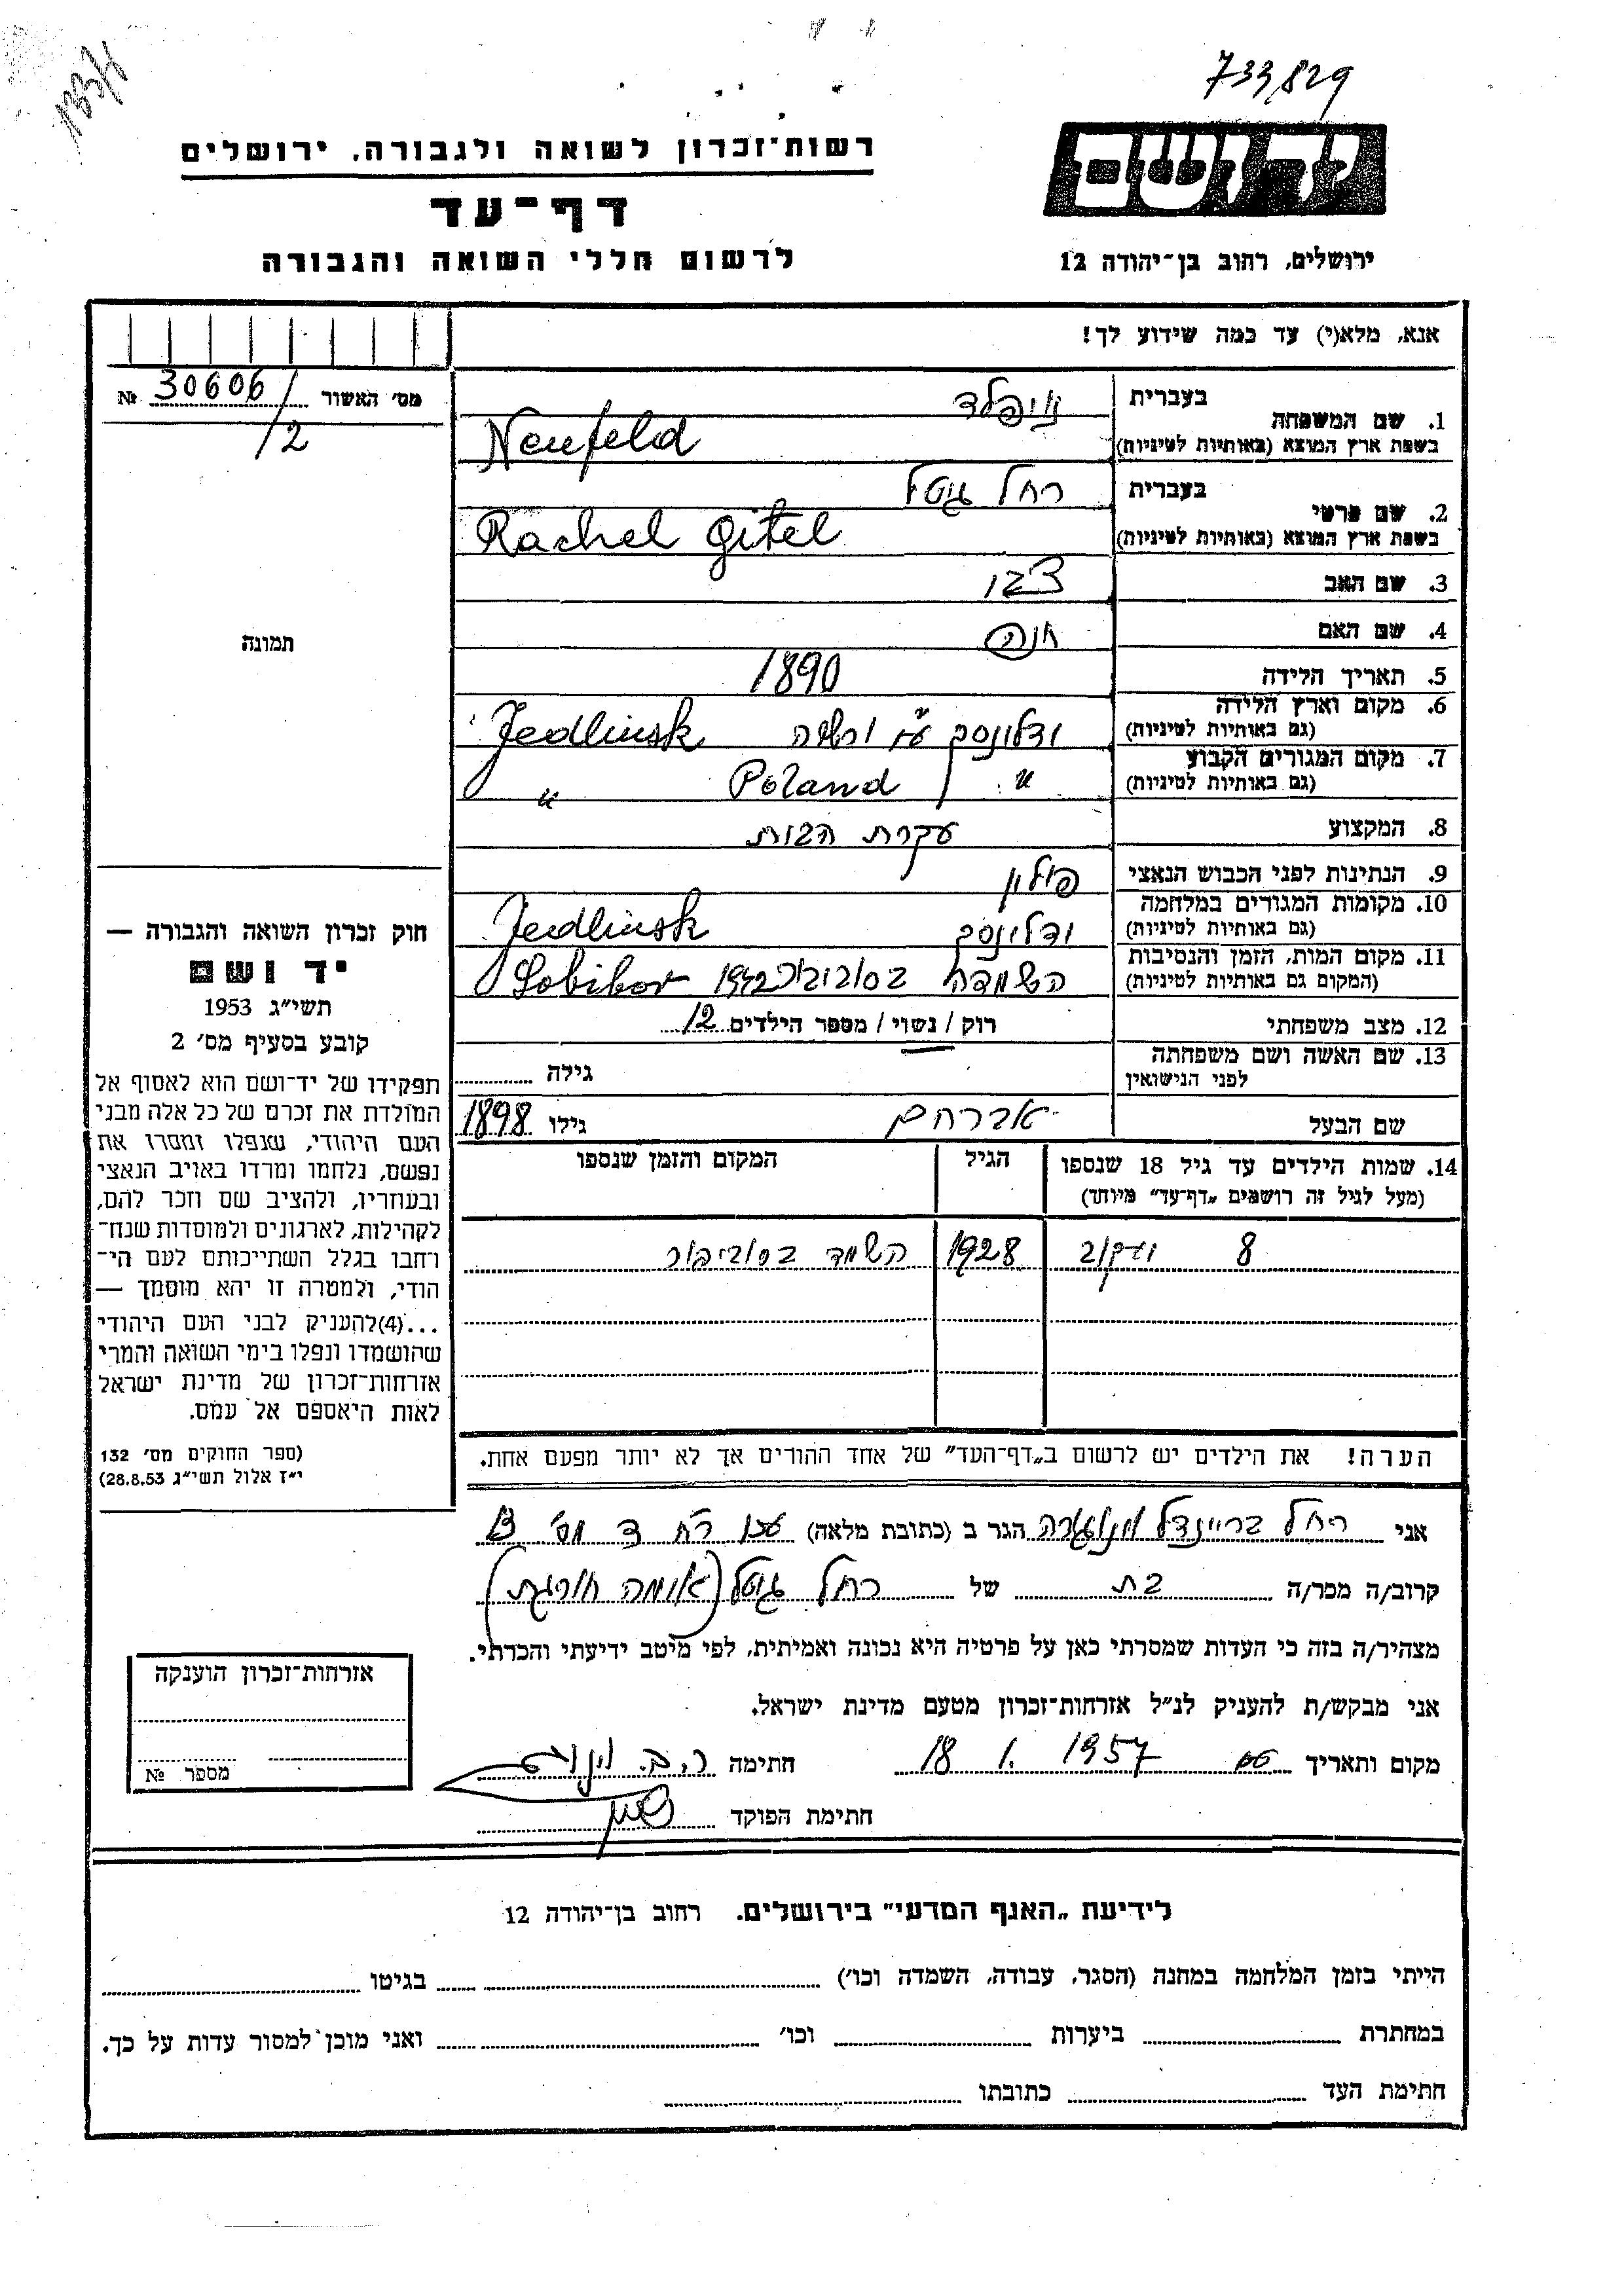 733,829
133/1
ידושם
ירושלים, רחוב בן־יהודה 12
רשות־זכרון לשואה ולגבורה, ירושלים
דף־עד
לרשום חללי השואה והגבורה
אנא, מלא(י) עד כמה שידוע לך!
מס' האשור 30606/ №
/2
1. שם המשפחה
בעברית נויפלד
בשפת ארץ המוצא (באותיות לטיניות) Neufeld
2. שם פרטי
בעברית רחל גיטל
בשפת ארץ המוצא (באותיות לטיניות) Rachel Gitel
3. שם האב
4. שם האם חנה
5. תאריך הלידה 1890
6. מקום וארץ הלידה
(גם באותיות לטיניות) ידלינסק ע"י Jedlinsk
7. מקום המגורים הקבוע
(גם באותיות לטיניות) " Poland "
8. המקצוע עקרת הבית
9. הנתינות לפני הכבוש הנאצי פולין
10. מקומות המגורים במלחמה
(גם באותיות לטיניות) ידלינסק Jedlinsk
11. מקום המות, הזמן והנסיבות
(המקום גם באותיות לטיניות) השמדה בסוביבור 1942 Sobibor
12. מצב משפחתי רוק / נשוי / מספר הילדים 12
13. שם האשה ושם משפחתה
לפני הנישואין גילה
שם הבעל אברהם גילו 1898
14. שמות הילדים עד גיל 18 שנספו הגיל המקום והזמן שנספו
(מעל לגיל זה רושמים „דף־עד" מיוחד)
8 יעקב 1928 השמד בסוביבור
הערה! את הילדים יש לרשום ב„דף־העד" של אחד ההורים אך לא יותר מפעם אחת.
תמונה
חוק זכרון השואה והגבורה —
יד ושם
תשי״ג 1953
קובע בסעיף מס' 2
תפקידו של יד־ושם הוא לאסוף אל
המולדת את זכרם של כל אלה מבני
העם היהודי, שנפלו ומסרו את
נפשם, נלחמו ומרדו באויב הנאצי
ובעוזריו, ולהציב שם וזכר להם,
לקהילות, לארגונים ולמוסדות שנח־
רחבו בגלל השתייכותם לעם הי־
הודי, ולמטרה זו יהא מוסמך —
...(4)להעניק לבני העם היהודי
שהושמדו ונפלו בימי השואה והמרי
אזרחות־זכרון של מדינת ישראל
לאות היאספם אל עמם.
(ספר החוקים מס' 132
י״ז אלול תשי״ג 28.8.53)
אני רחל בריינדל הגר ב (כתובת מלאה) עכו ד מס' 13
קרוב/ה מכר/ה בת של רחל גיטל (אימה חורגת)
מצהיר/ה בזה כי העדות שמסרתי כאן על פרטיה היא נכונה ואמיתית, לפי מיטב ידיעתי והכרתי.
אני מבקש/ת להעניק לנ״ל אזרחות־זכרון מטעם מדינת ישראל.
מקום ותאריך 18 1. 1957 חתימה
חתימת הפוקד
אזרחות־זכרון הוענקה
מספר №
לידיעת „האנף המדעי" בירושלים. רחוב בן־יהודה 12
הייתי בזמן המלחמה במחנה (הסגר, עבודה, השמדה וכו') בגיטו
במחתרת ביערות וכו' ואני מוכן למסור עדות על כך.
חתימת העד כתובתו